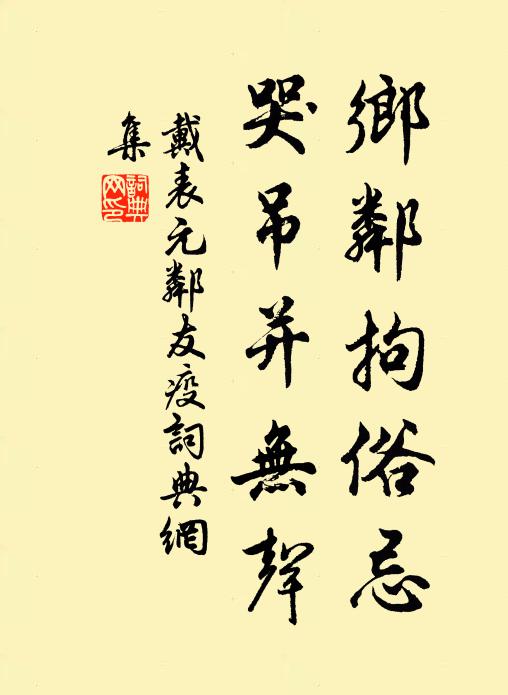 鄉鄰拘俗忌
哭吊并無聲
戴表元鄰友疫詞典網
集
詞典
网印